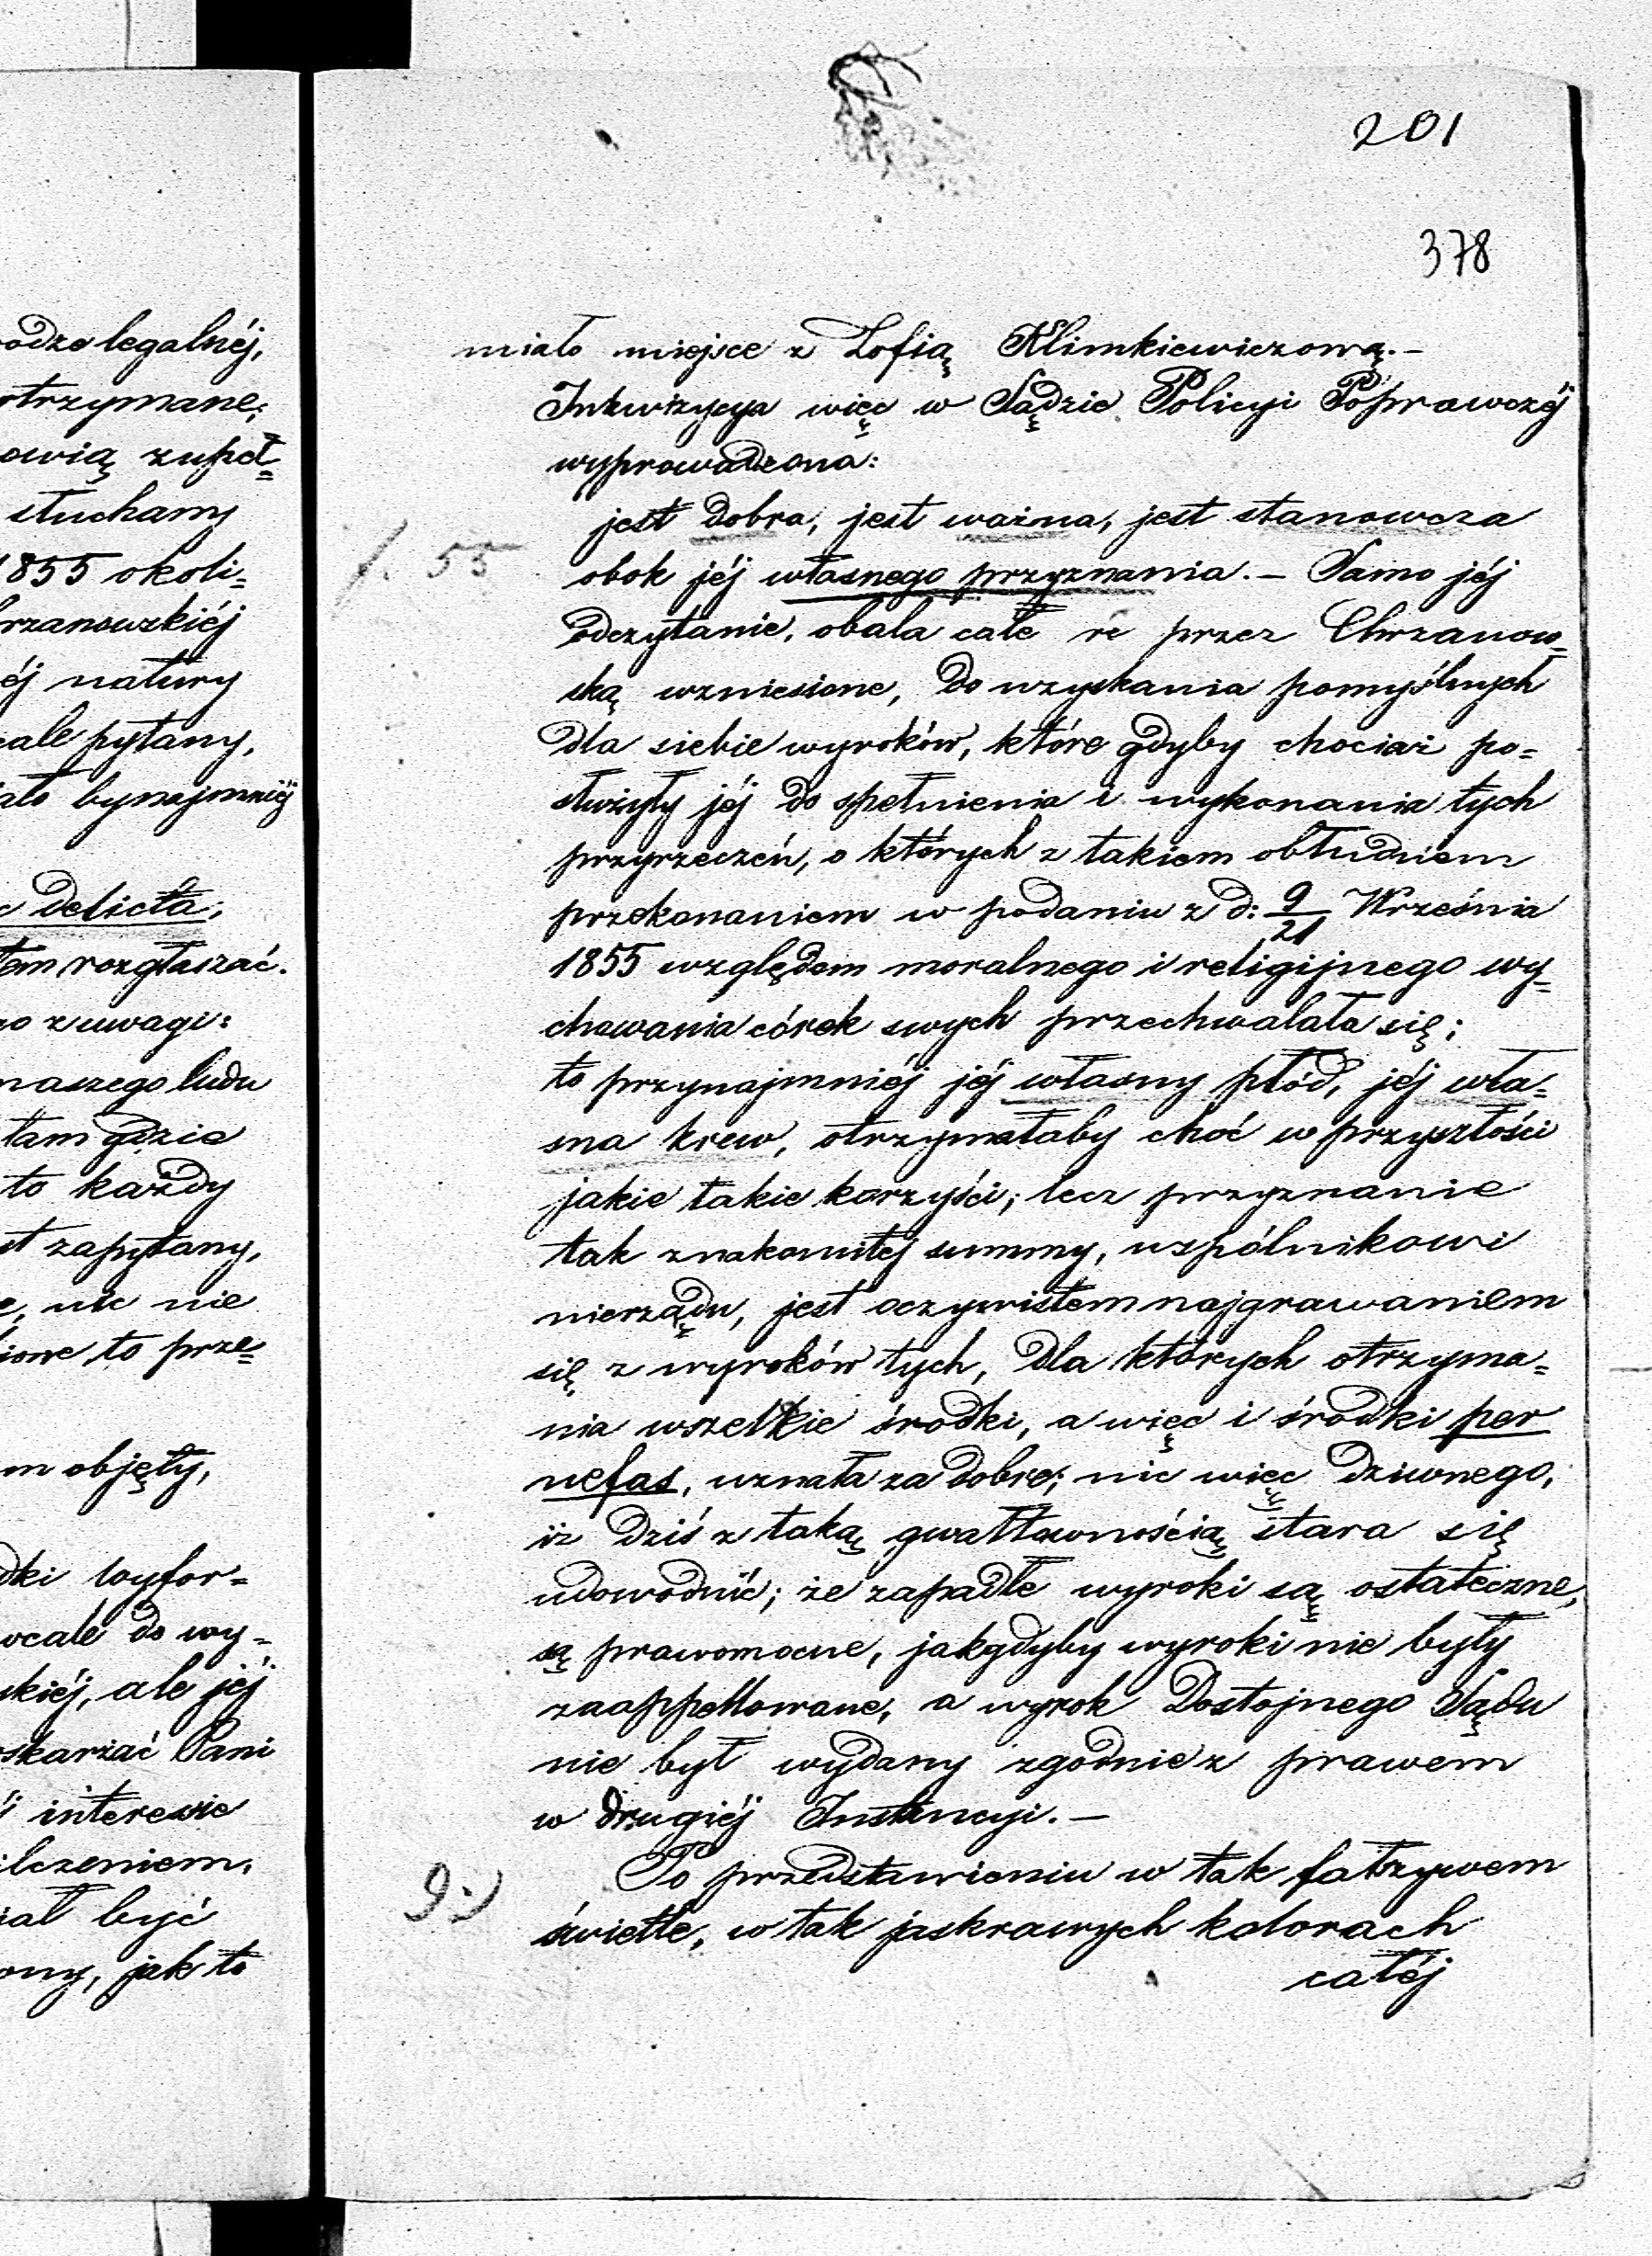 odze legalnéj,
otrzymane;
owią zupeł=
słuchamy
1855 okoli=
rzanowskiéj
éj natury
cale pytany,
ało bynajmniéj
delicta,
tem rozgłaszać.
zuwagi:
naszego ludu
tam gdzie
to każdy
st zapytany,
nic nie
ione to prze=
m objęty,
dki wyfor=
wcale do wy=
skiéj, ale jéj
oskarzać Pani
i interesie
ilczeniem,
iał być
ony, jak to
201
378
miało miejsce z Zofią Klimkiewiczową.—
Inkwizycya więc w Sądzie Policyi Poprawczéj
wyprowadzona:
jest dobra, jest ważna, jest stanowcza
f. 55
obok jéj własnego przyznania.— Samo jéj
odczytanie, obala całe re przez Chrzanow=
ską wzniesione, do uzyskania pomyślnych
dla siebie wyroków, które gdyby chociaż po=
służyły jéj do spełnienia i wykonania tych
przyrzeczeń, o których z takiem obłudnem
przekonaniem w podaniu z d: 9/21 Września
1855 względem moralnego i religijnego wy=
chowania córek swych przechwalała się;
to przynajmniéj jéj własny płód, jéj wła=
sna krew, otrzymałaby choć w przyszłości
jakie takie korzyści; lecz przyznanie
tak znakomitéj summy, wspólnikowi
nierządu, jest oczywistem najgrawaniem
się z wyroków tych, dla których otrzyma=
nia wszelkie środki, a więc i środki per
nefas, uznała za dobre; nic więc dziwnego,
iż dziś z taką gwałtownością stara się
udowodnić; że zapadłe wyroki są ostateczne,
są prawomocne, jakgdyby wyroki nie były
zaappellowane, a wyrok Dostojnego Sądu
nie był wydany zgodnie z prawem
w drugiéj Instancyi.—
9.)
Po przedstawieniu w tak fałszywem
świetle, w tak jaskrawych kolorach
całéj